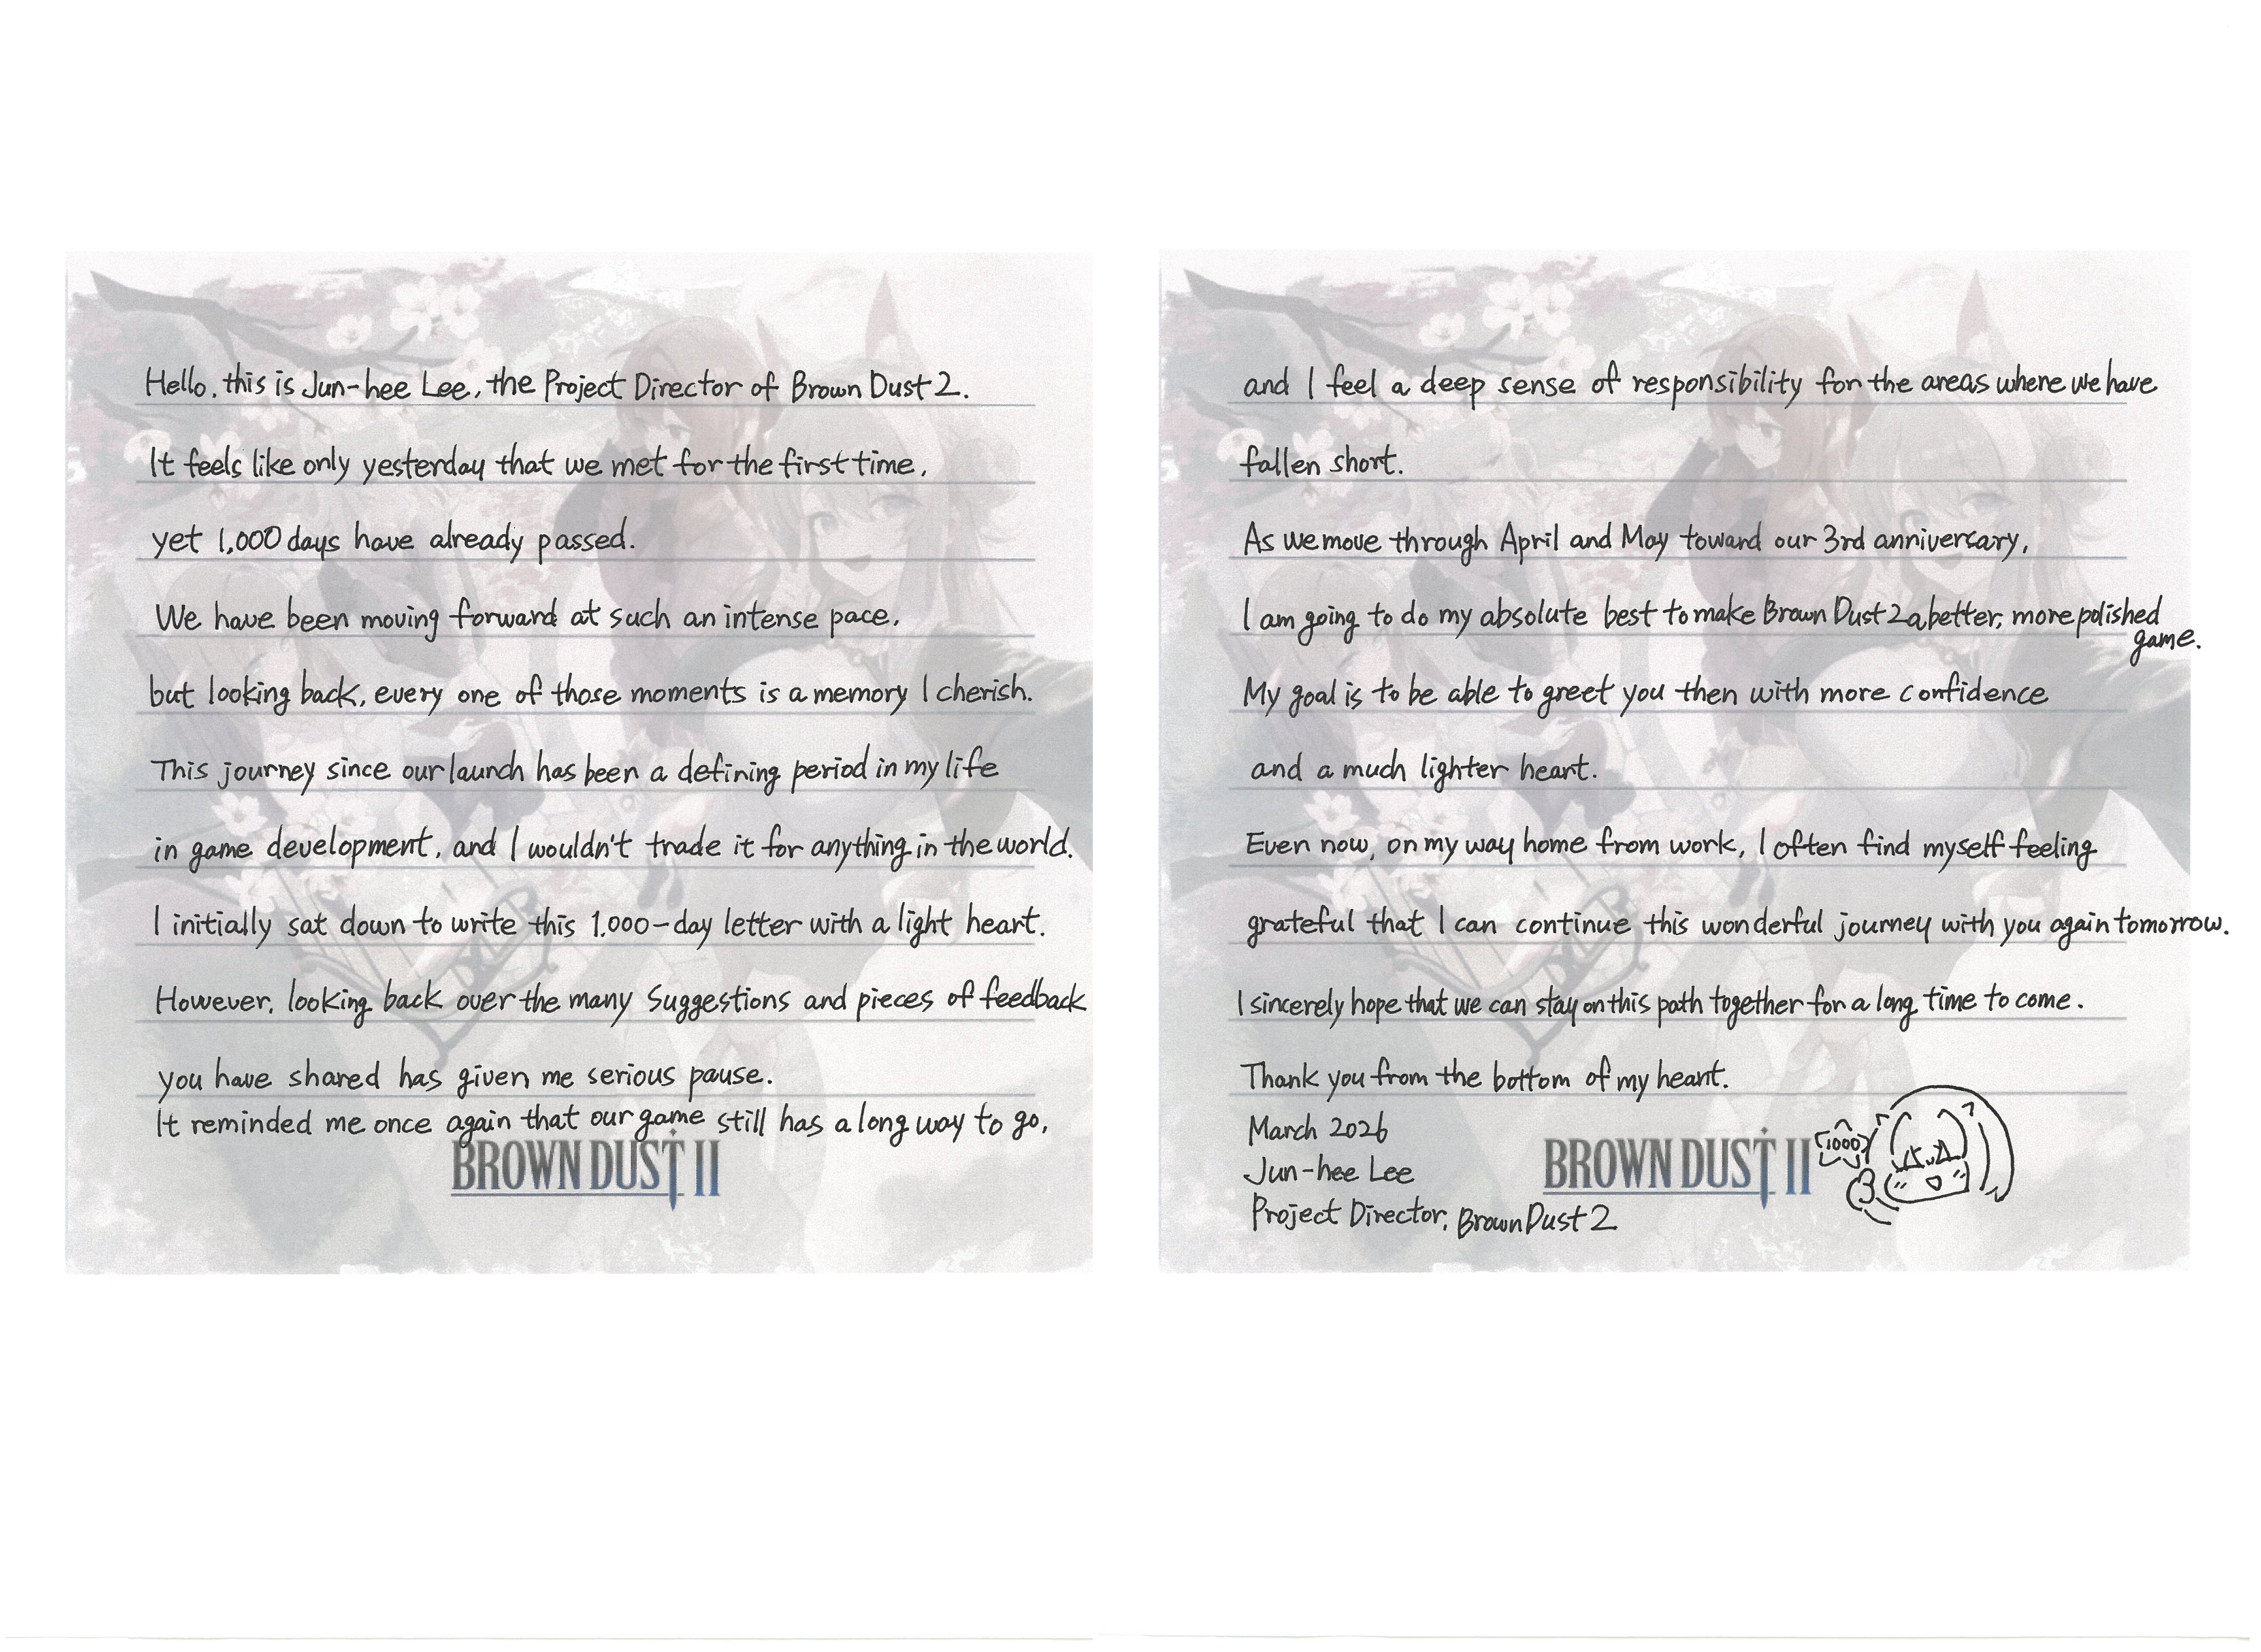 Hello, this is Jun-hee Lee, the Project Director of Brown Dust 2.
It feels like only yesterday that we met for the first time,
yet 1,000 days have already passed.
We have been moving forward at such an intense pace,
but looking back, every one of those moments is a memory I cherish.
This journey since our launch has been a defining period in my life
in game development, and I wouldn't trade it for anything in the world.
I initially sat down to write this 1,000-day letter with a light heart.
However, looking back over the many suggestions and pieces of feedback
you have shared has given me serious pause.
It reminded me once again that our game still has a long way to go,
BROWN DUST II
and I feel a deep sense of responsibility for the areas where we have
fallen short.
As we move through April and May toward our 3rd anniversary,
I am going to do my absolute best to make Brown Dust 2 a better, more polished
game.
My goal is to be able to greet you then with more confidence
and a much lighter heart.
Even now, on my way home from work, I often find myself feeling
grateful that I can continue this wonderful journey with you again tomorrow.
I sincerely hope that we can stay on this path together for a long time to come.
Thank you from the bottom of my heart.
March 2026
Jun-hee Lee
Project Director, Brown Dust 2
BROWN DUST II
1000